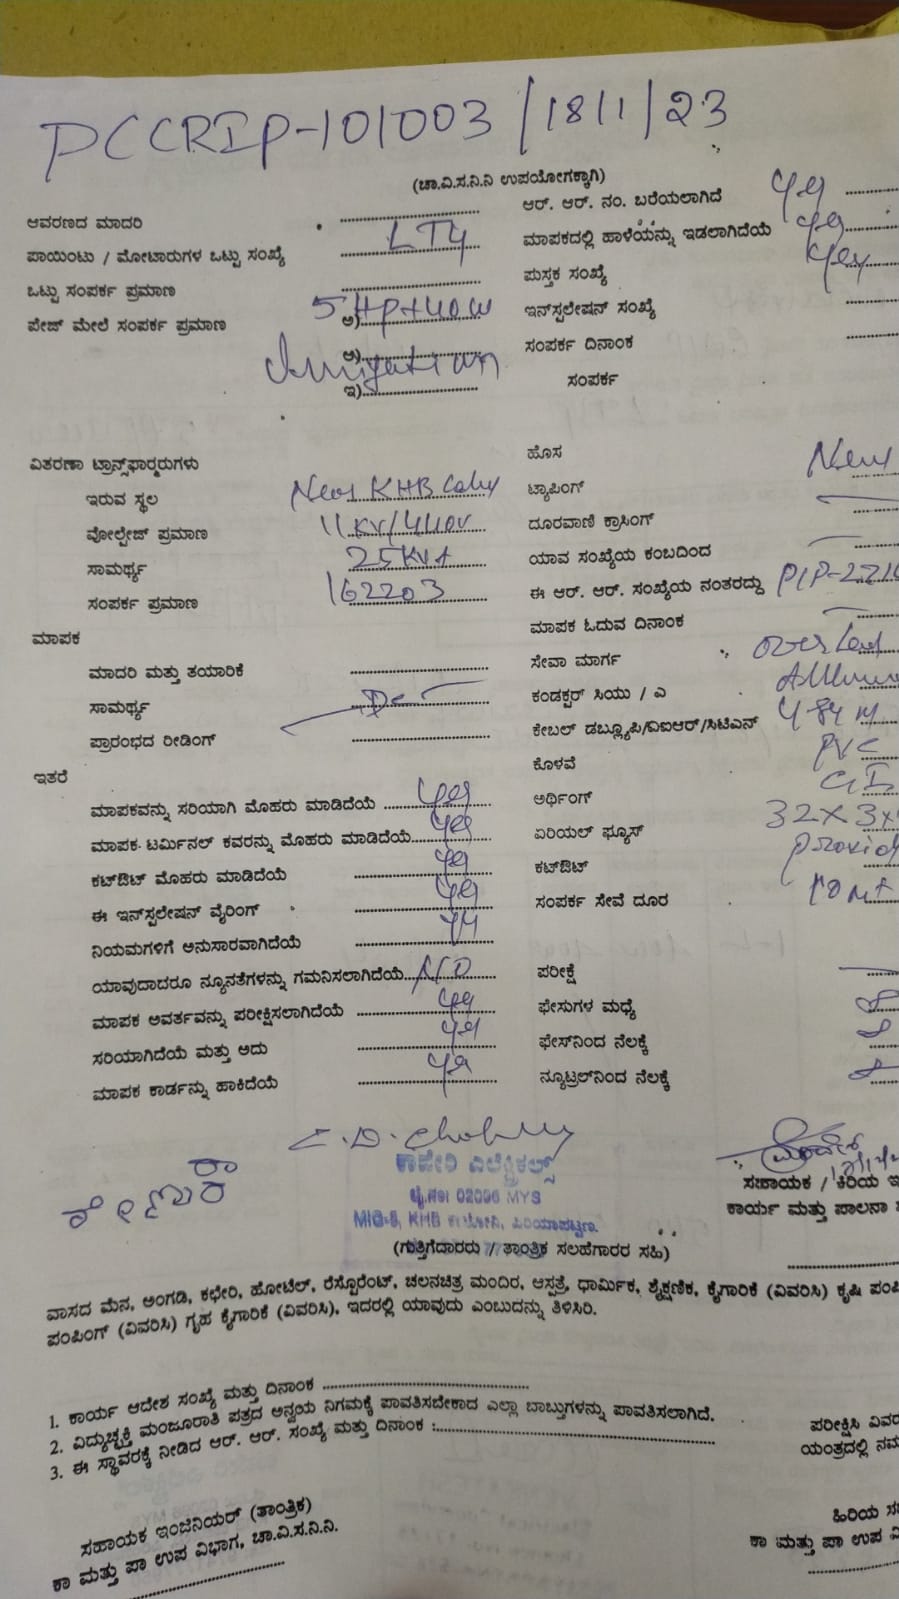 PCCRIP-101003/18/1/23
(ಚಾ.ವಿ.ಸ.ನಿ.ನಿ ಉಪಯೋಗಕ್ಕಾಗಿ)
ಆವರಣದ ಮಾದರಿ
ಪಾಯಿಂಟು / ಮೋಟಾರುಗಳ ಒಟ್ಟು ಸಂಖ್ಯೆ LT4
ಒಟ್ಟು ಸಂಪರ್ಕ ಪ್ರಮಾಣ
ಪೇಜ್ ಮೇಲೆ ಸಂಪರ್ಕ ಪ್ರಮಾಣ ಅ) 5HP+40W
ಆ) Irrigation
ಇ)
ಆರ್. ಆರ್. ನಂ. ಬರೆಯಲಾಗಿದೆ yes
ಮಾಪಕದಲ್ಲಿ ಹಾಳೆಯನ್ನು ಇಡಲಾಗಿದೆಯೆ yes
ಪುಸ್ತಕ ಸಂಖ್ಯೆ yes
ಇನ್‌ಸ್ಟಲೇಷನ್ ಸಂಖ್ಯೆ
ಸಂಪರ್ಕ ದಿನಾಂಕ
ಸಂಪರ್ಕ
ವಿತರಣಾ ಟ್ರಾನ್ಸ್‌ಫಾರ್‍ಮರುಗಳು
ಇರುವ ಸ್ಥಲ Near KHB Colny
ವೋಲ್ಟೇಜ್ ಪ್ರಮಾಣ 11KV/440V
ಸಾಮರ್ಥ್ಯ 25KVA
ಸಂಪರ್ಕ ಪ್ರಮಾಣ 162203
ಮಾಪಕ
ಮಾದರಿ ಮತ್ತು ತಯಾರಿಕೆ
ಸಾಮರ್ಥ್ಯ
ಪ್ರಾರಂಭದ ರೀಡಿಂಗ್
ಹೊಸ New
ಟ್ಯಾಪಿಂಗ್
ದೂರವಾಣಿ ಕ್ರಾಸಿಂಗ್
ಯಾವ ಸಂಖ್ಯೆಯ ಕಂಬದಿಂದ
ಈ ಆರ್. ಆರ್. ಸಂಖ್ಯೆಯ ನಂತರದ್ದು PIP-2210
ಮಾಪಕ ಓದುವ ದಿನಾಂಕ
ಸೇವಾ ಮಾರ್ಗ
ಕಂಡಕ್ಟರ್ ಸಿಯು / ಎ
ಕೇಬಲ್ ಡಬ್ಲ್ಯೂಪಿ/ಐಐಆರ್/ಸಿಟಿಎಸ್
ಕೊಳವೆ PVC
ಅರ್ಥಿಂಗ್ GI
ಏರಿಯಲ್ ಫ್ಯೂಸ್
ಕಟ್‌ಔಟ್
ಸಂಪರ್ಕ ಸೇವೆ ದೂರ 10 mt
ಇತರೆ
ಮಾಪಕವನ್ನು ಸರಿಯಾಗಿ ಮೊಹರು ಮಾಡಿದೆಯೆ yes
ಮಾಪಕ ಟರ್ಮಿನಲ್ ಕವರನ್ನು ಮೊಹರು ಮಾಡಿದೆಯೆ yes
ಕಟ್‌ಔಟ್ ಮೊಹರು ಮಾಡಿದೆಯೆ yes
ಈ ಇನ್‌ಸ್ಟಲೇಷನ್ ವೈರಿಂಗ್ yes
ನಿಯಮಗಳಿಗೆ ಅನುಸಾರವಾಗಿದೆಯೆ yes
ಯಾವುದಾದರೂ ನ್ಯೂನತೆಗಳನ್ನು ಗಮನಿಸಲಾಗಿದೆಯೆ NO
ಮಾಪಕ ಆವರ್ತವನ್ನು ಪರೀಕ್ಷಿಸಲಾಗಿದೆಯೆ yes
ಸರಿಯಾಗಿದೆಯೆ ಮತ್ತು ಅದು yes
ಮಾಪಕ ಕಾರ್ಡನ್ನು ಹಾಕಿದೆಯೆ yes
ಪರೀಕ್ಷೆ
ಫೇಸುಗಳ ಮಧ್ಯೆ
ಫೇಸ್‌ನಿಂದ ನೆಲಕ್ಕೆ
ನ್ಯೂಟ್ರಲ್‌ನಿಂದ ನೆಲಕ್ಕೆ
ಕಾವೇರಿ ಎಲೆಕ್ಟ್ರಿಕಲ್ಸ್
ಲೈ.ನಂ 02096 MYS
MIG-5, KHB ಕಾಲೋನಿ, ಪಿರಿಯಾಪಟ್ಟಣ.
(ಗುತ್ತಿಗೆದಾರರು / ತಾಂತ್ರಿಕ ಸಲಹೆಗಾರರ ಸಹಿ)
ಸಹಾಯಕ / ಕಿರಿಯ
ಕಾರ್ಯ ಮತ್ತು ಪಾಲನಾ
ವಾಸದ ಮನೆ, ಅಂಗಡಿ, ಕಛೇರಿ, ಹೋಟೆಲ್, ರೆಸ್ಟೊರೆಂಟ್, ಚಲನಚಿತ್ರ ಮಂದಿರ, ಆಸ್ಪತ್ರೆ, ಧಾರ್ಮಿಕ, ಶೈಕ್ಷಣಿಕ, ಕೈಗಾರಿಕೆ (ವಿವರಿಸಿ) ಕೃಷಿ
ಪಂಪಿಂಗ್ (ವಿವರಿಸಿ) ಗೃಹ ಕೈಗಾರಿಕೆ (ವಿವರಿಸಿ), ಇದರಲ್ಲಿ ಯಾವುದು ಎಂಬುದನ್ನು ತಿಳಿಸಿರಿ.
1. ಕಾರ್ಯ ಆದೇಶ ಸಂಖ್ಯೆ ಮತ್ತು ದಿನಾಂಕ
2. ವಿದ್ಯುಚ್ಛಕ್ತಿ ಮಂಜೂರಾತಿ ಪತ್ರದ ಅನ್ವಯ ನಿಗಮಕ್ಕೆ ಪಾವತಿಸಬೇಕಾದ ಎಲ್ಲಾ ಬಾಬ್ತುಗಳನ್ನು ಪಾವತಿಸಲಾಗಿದೆ.
3. ಈ ಸ್ಥಾವರಕ್ಕೆ ನೀಡಿದ ಆರ್. ಆರ್. ಸಂಖ್ಯೆ ಮತ್ತು ದಿನಾಂಕ :
ಪರೀಕ್ಷಿಸಿ
ಯಂತ್ರದಲ್ಲಿ
ಸಹಾಯಕ ಇಂಜಿನಿಯರ್ (ತಾಂತ್ರಿಕ)
ಕಾ ಮತ್ತು ಪಾ ಉಪ ವಿಭಾಗ, ಚಾ.ವಿ.ಸ.ನಿ.ನಿ.
ಹಿರಿಯ
ಕಾ ಮತ್ತು ಪಾ ಉಪ